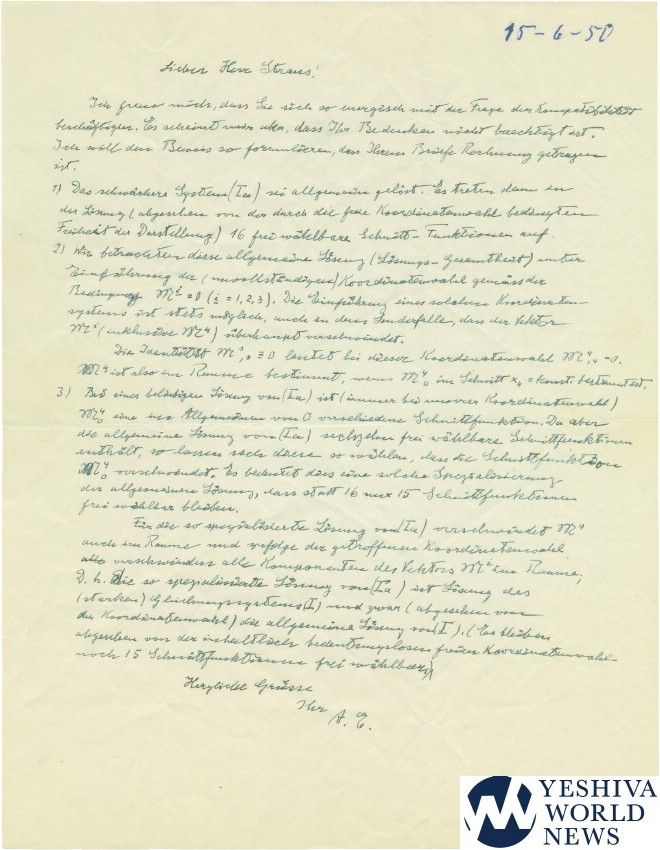 15-6-50
Lieber Herr Straus!
Ich freue mich, dass Sie sich so energisch mit der Frage der Kompatibilität
beschäftigen. Es scheint mir aber, dass Ihr Bedenken nicht berechtigt ist.
Ich will den Beweis so formulieren, dass Ihrem Briefe Rechnung getragen
ist.
1) Das schwächere System (Ia) sei allgemein gelöst. Es treten dann in
der Lösung (abgesehen von der durch die freie Koordinatenwahl bedingten
Freiheit der Darstellung) 16 frei wählbare Schnitt-Funktionen auf.
2) Wir betrachten diese allgemeine Lösung (Lösungs-Gesamtheit) unter
Einführung der (unvollständigen) Koordinatenwahl gemäss der
Bedingung 𝔐ⁱ = 0 (i = 1, 2, 3). Die Einführung eines solchen Koordinaten-
systems ist stets möglich, auch in dem Sonderfalle, dass der Vektor
𝔐ˢ (inklusive 𝔐⁴) überhaupt verschwindet.
Die Identität 𝔐ˢ,ₛ ≡ 0 lautet bei dieser Koordinatenwahl 𝔐⁴,₄ = 0.
𝔐⁴ ist also im Raume bestimmt, wenn 𝔐⁴₀ im Schnitt x₄ = konst. bestimmt ist.
3) Bei einer beliebigen Lösung von (Ia) ist (immer bei unserer Koordinatenwahl)
𝔐⁴₀ eine im Allgemeinen von 0 verschiedene Schnittfunktion. Da aber
die allgemeine Lösung von (Ia) sechzehn frei wählbare Schnittfunktionen
enthält, so lassen sich diese so wählen, dass die Schnittfunktion
𝔐⁴₀ verschwindet. Es bedeutet dies eine solche Spezialisierung
der allgemeinen Lösung, dass statt 16 nur 15 Schnittfunktionen
frei wählbar bleiben.
Für die so spezialisierte Lösung von (Ia) verschwindet 𝔐⁴
auch im Raume und zufolge der getroffenen Koordinatenwahl
verschwinden alle Komponenten des Vektors 𝔐ˢ im Raume,
D. h. Die so spezialisierte Lösung von (Ia) ist Lösung des
(starken) Gleichungssystems (I) und zwar (abgesehen von
der Koordinatenwahl) die allgemeine Lösung von (I). (Es bleiben
abgesehen von der inhaltlich bedeutungslosen freien Koordinatenwahl
noch 15 Schnittfunktionen frei wählbar)
Herzliche Grüsse
Ihr
A. E.
YESHIVA
WORLD
NEWS